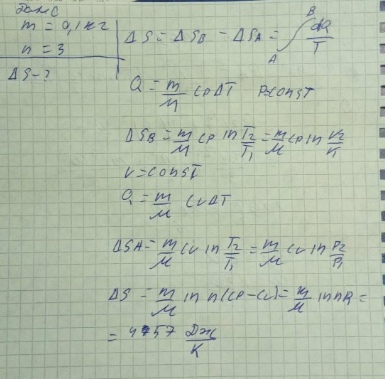 Дано
m = 0,1 кг
n = 3
ΔS - ?
ΔS = ΔS_B - ΔS_A = ∫_A^B dQ/T
Q = m/M cp ΔT P=const
ΔS_B = m/M cp ln T2/T1 = m/M cp ln V2/V1
V = const
Q = m/M cv ΔT
ΔS_A = m/M cv ln T2/T1 = m/M cv ln P2/P1
ΔS = m/M ln n (cp - cv) = m/M ln n R =
= Дж/К